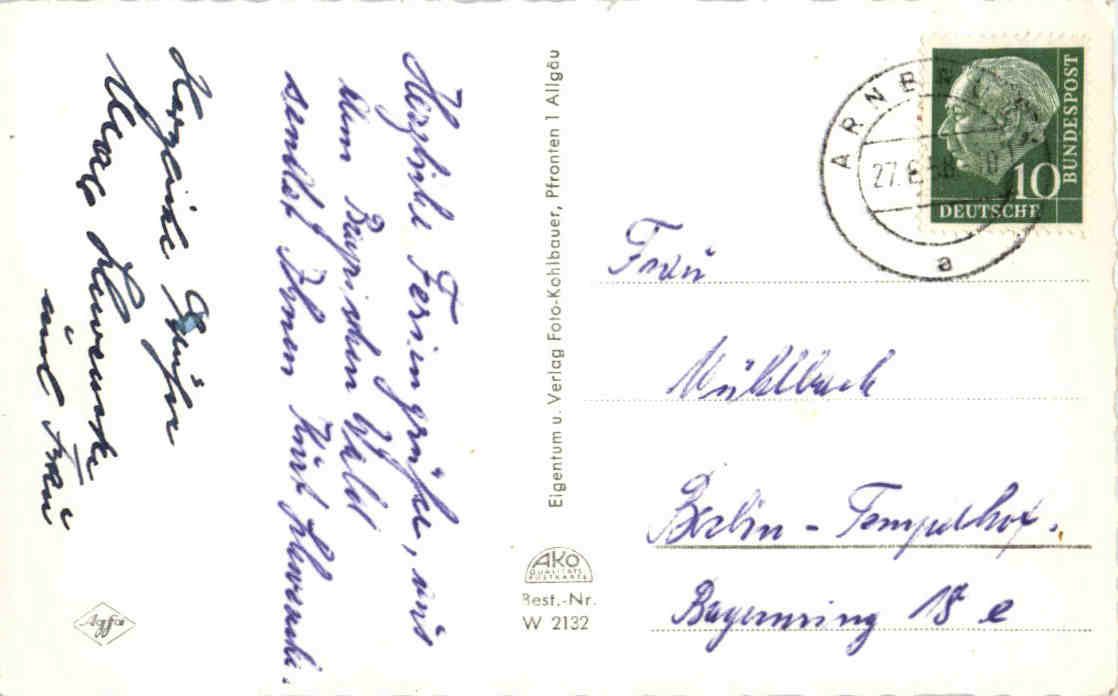 Herzliche Feriengrüße, aus
dem Bayrischen Wald
sendet Ihnen Kurt
Herzliche Grüße
und Frau
Eigentum u. Verlag Foto-Kohlbauer, Pfronten 1 Allgäu
AKO
QUALITÄTS
POSTKARTE
Best.-Nr.
W 2132
Agfa
ARNBRUCK
27.6.58
a
10
DEUTSCHE
BUNDESPOST
Frau
Mühlbach
Berlin - Tempelhof.
Bayernring 18 e